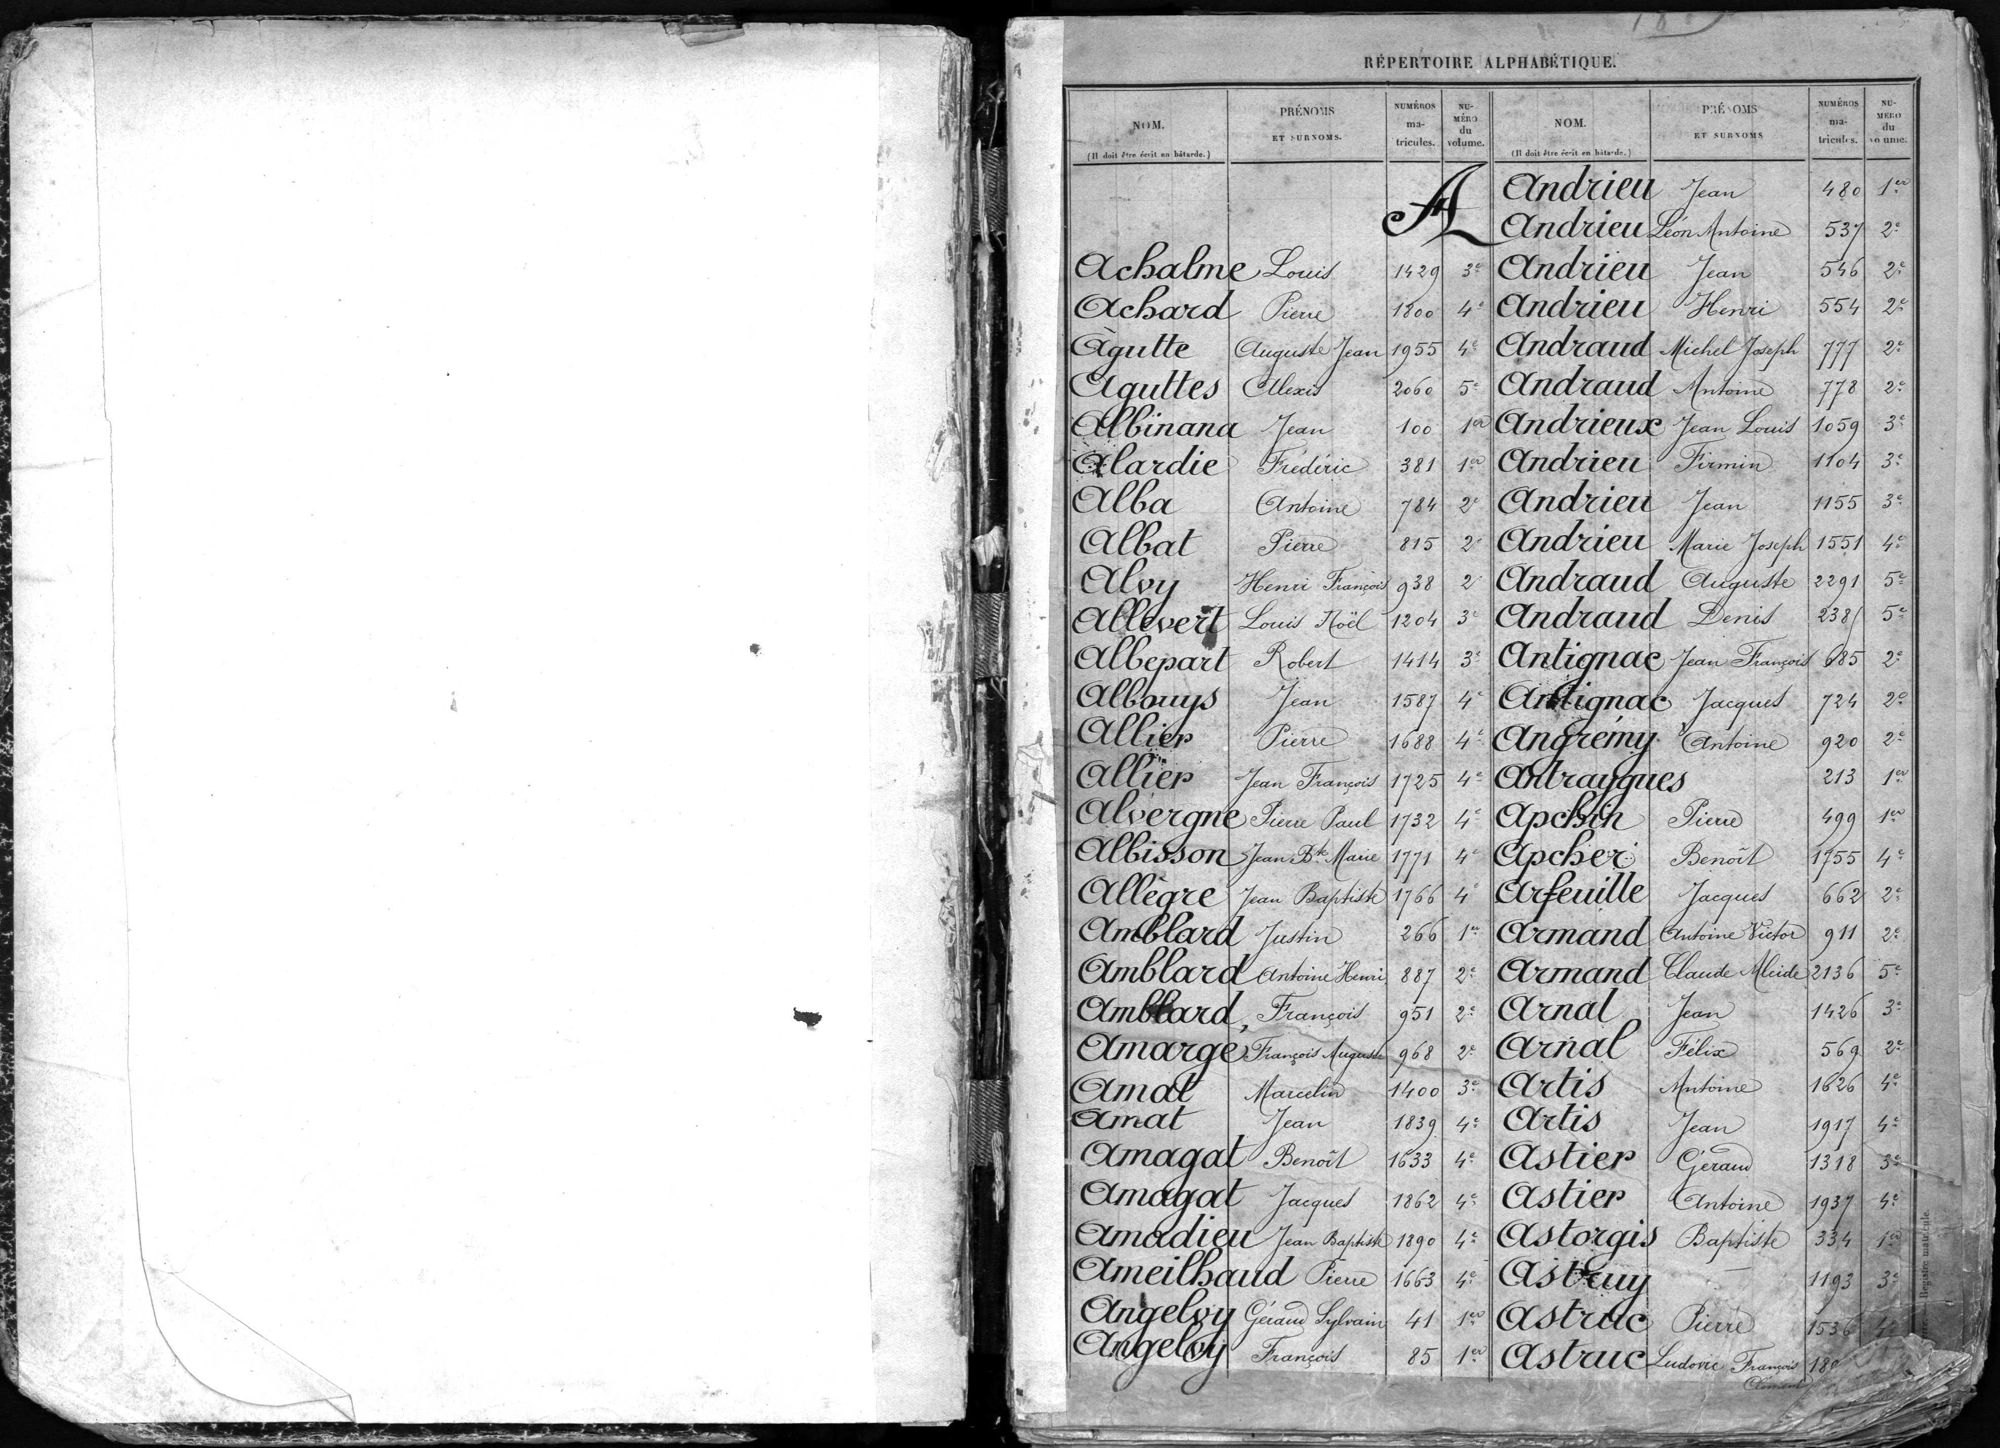 RÉPERTOIRE ALPHABÉTIQUE.
NOM. (Il doit être écrit en bâtarde.) PRÉNOMS ET SURNOMS. NUMÉROS ma-tricules. NU-MÉRO du volume.
A
Achalme Louis 1429 3e
Achard Pierre 1800 4e
Agutte Auguste Jean 1955 4e
Aguttes Alexis 2060 5e
Albinana Jean 100 1er
Alardie Frédéric 381 1er
Alba Antoine 784 2e
Albat Pierre 815 2e
Alvy Henri François 938 2e
Allevert Louis Noël 1204 3e
Albepart Robert 1414 3e
Albouys Jean 1587 4e
Allier Pierre 1688 4e
Allier Jean François 1725 4e
Alvergne Pierre Paul 1732 4e
Albisson Jean Bte Marie 1771 4e
Allègre Jean Baptiste 1766 4e
Amblard Justin 266 1er
Amblard Antoine Henri 887 2e
Amblard, François 951 2e
Amarge François Auguste 968 2e
Amat Marcelin 1400 3e
Amat Jean 1839 4e
Amagat Benoît 1633 4e
Amagat Jacques 1862 4e
Amadieu Jean Baptiste 1890 4e
Ameilhaud Pierre 1663 4e
Angelvy Géraud Sylvain 41 1er
Angelvy François 85 1er
NOM. (Il doit être écrit en bâtarde.) PRÉNOMS ET SURNOMS NUMÉROS ma-tricules. NU-MÉRO du volume.
Andrieu Jean 480 1er
Andrieu Léon Antoine 537 2e
Andrieu Jean 546 2e
Andrieu Henri 554 2e
Andraud Michel Joseph 777 2e
Andraud Antoine 778 2e
Andrieux Jean Louis 1059 3e
Andrieu Firmin 1104 3e
Andrieu Jean 1155 3e
Andrieu Marie Joseph 1551 4e
Andraud Auguste 2291 5e
Andraud Denis 238 5e
Antignac Jean François 685 2e
Antignac Jacques 724 2e
Angrémy Antoine 920 2e
Antraygues 213 1er
Apchin Pierre 499 1er
Apcher Benoît 1755 4e
Arfeuille Jacques 662 2e
Armand Antoine Victor 911 2e
Armand Claude Alcide 2136 5e
Arnal Jean 1426 3e
Arnal Félix 569 2e
Artis Antoine 1626 4e
Artis Jean 1917 4e
Astier Géraud 1318 3e
Astier Antoine 1937 4e
Astorgis Baptiste 334 1er
Astruy 1193 3e
Astruc Pierre 1536 4e
Astruc Ludovic François 18
Clément
Registre matricule.